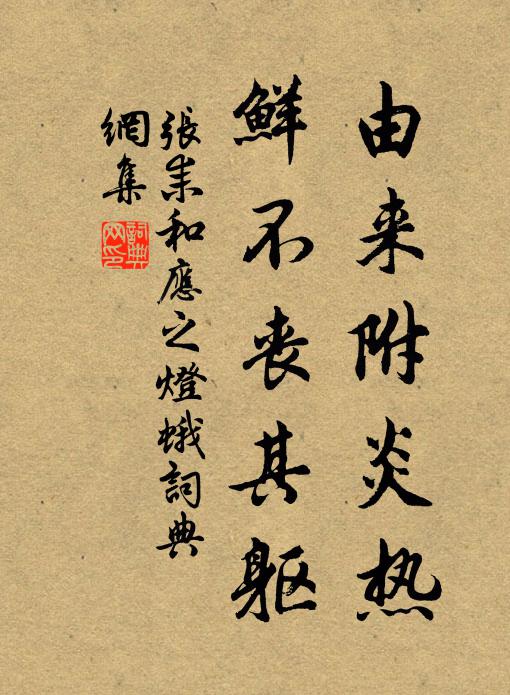 由来附炎热
鲜不丧其躯
張耒和應之燈蛾詞典
網集
詞典
网印